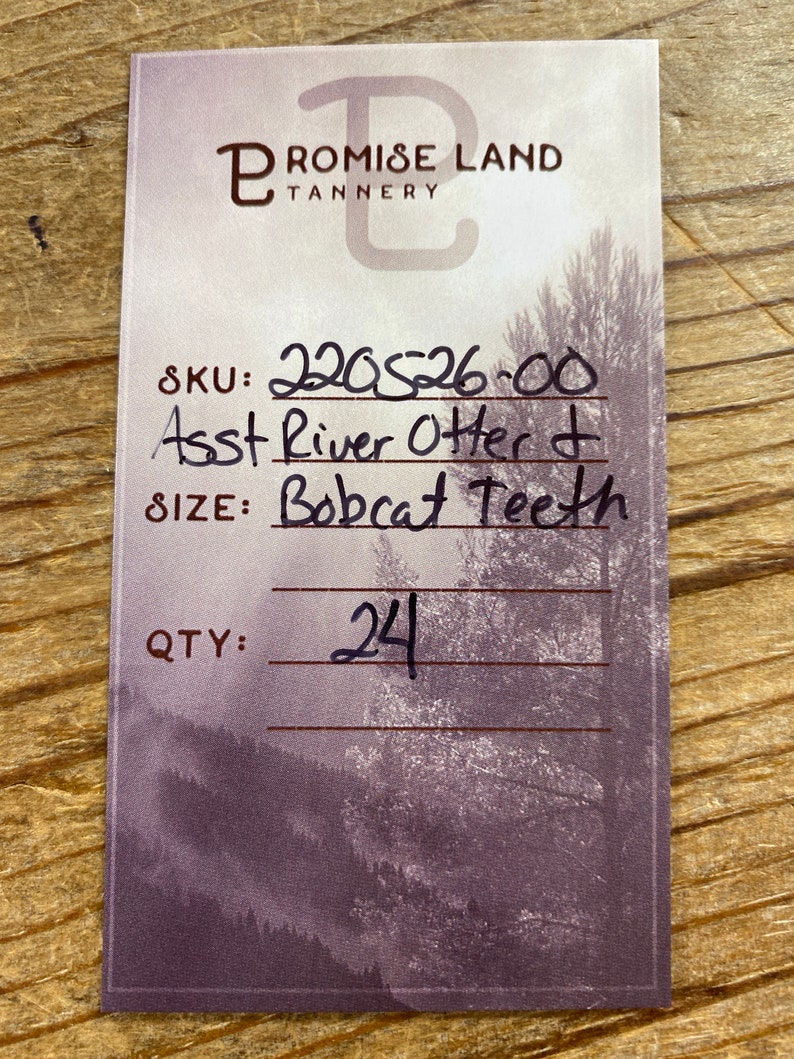 PROMISE LAND
TANNERY
SKU: 220526-00
Asst River Otter &
SIZE: Bobcat Teeth
QTY: 24